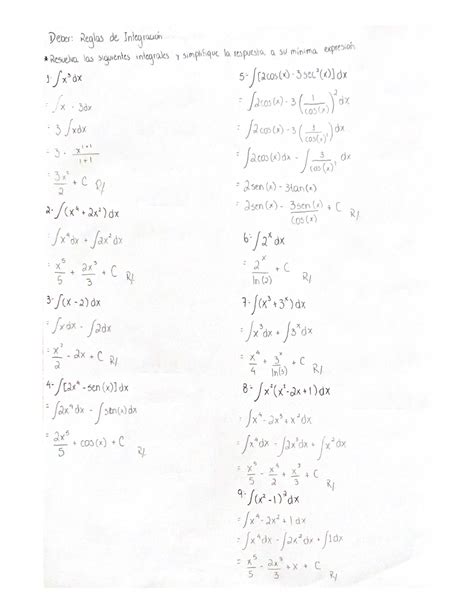 Deber: Reglas de Integración
*Resuelva las siguientes integrales y simplifique la respuesta a su mínima expresión
1- ∫x³dx
= ∫x · 3dx
= 3 ∫xdx
= 3 · x¹⁺¹/1+1
= 3x²/2 + C R/.
2- ∫(x⁴ + 2x²)dx
= ∫x⁴dx + ∫2x²dx
= x⁵/5 + 2x³/3 + C R/.
3- ∫(x - 2)dx
= ∫xdx - ∫2dx
= x²/2 - 2x + C R/.
4- ∫[2x⁴ - sen(x)]dx
= ∫2x⁴dx - ∫sen(x)dx
= 2x⁵/5 + cos(x) + C R/.
5- ∫[2cos(x) - 3sec²(x)]dx
= ∫2cos(x) - 3(1/cos(x))² dx
= ∫2cos(x) - 3(3/cos(x)²) dx
= ∫2cos(x)dx - ∫3/cos(x)² dx
= 2sen(x) - 3tan(x)
= 2sen(x) - 3sen(x)/cos(x) + C R/.
6- ∫2ˣdx
= 2ˣ/ln(2) + C R/.
7- ∫(x³ + 3ˣ)dx
= ∫x³dx + ∫3ˣdx
= x⁴/4 + 3ˣ/ln(3) + C R/.
8- ∫x²(x²-2x+1)dx
= ∫x⁴ - 2x³ + x²dx
= ∫x⁴dx - ∫2x³dx + ∫x²dx
= x⁵/5 - x⁴/2 + x³/3 + C R/.
9- ∫(x²-1)²dx
= ∫x⁴ - 2x² + 1dx
= ∫x⁴dx - ∫2x²dx + ∫1dx
= x⁵/5 - 2x³/3 + x + C R/.